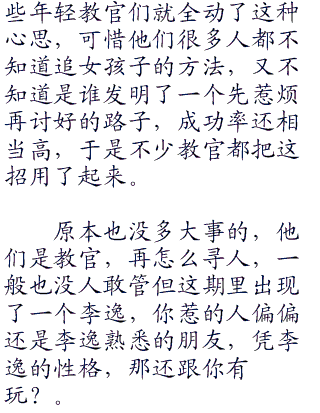 些年轻教官们就全动了这种
心思，可惜他们很多人都不
知道追女孩子的方法，又不
知道是谁发明了一个先惹烦
再讨好的路子，成功率还相
当高，于是不少教官都把这
招用了起来。
原本也没多大事的，他
们是教官，再怎么寻人，一
般也没人敢管但这期里出现
了一个李逸，你惹的人偏偏
还是李逸熟悉的朋友，凭李
逸的性格，那还跟你有
玩？。